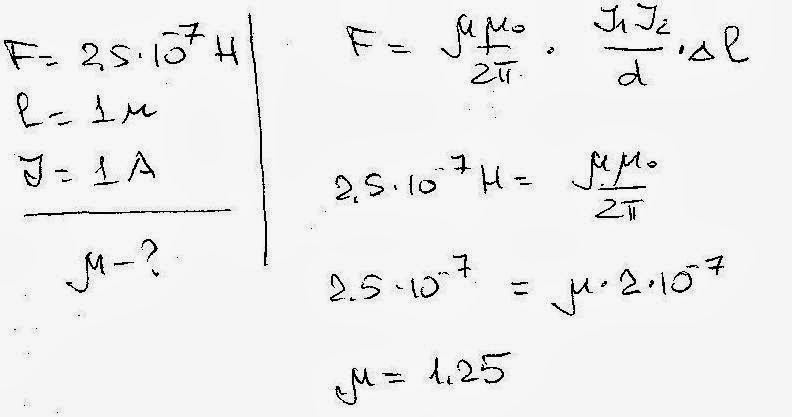 F = 2,5·10⁻⁷ Н
l = 1м
J = 1 А
μ - ?
F = μμ₀/2π · J₁J₂/d · Δl
2,5·10⁻⁷ Н = μμ₀/2π
2,5·10⁻⁷ = μ·2·10⁻⁷
μ = 1,25